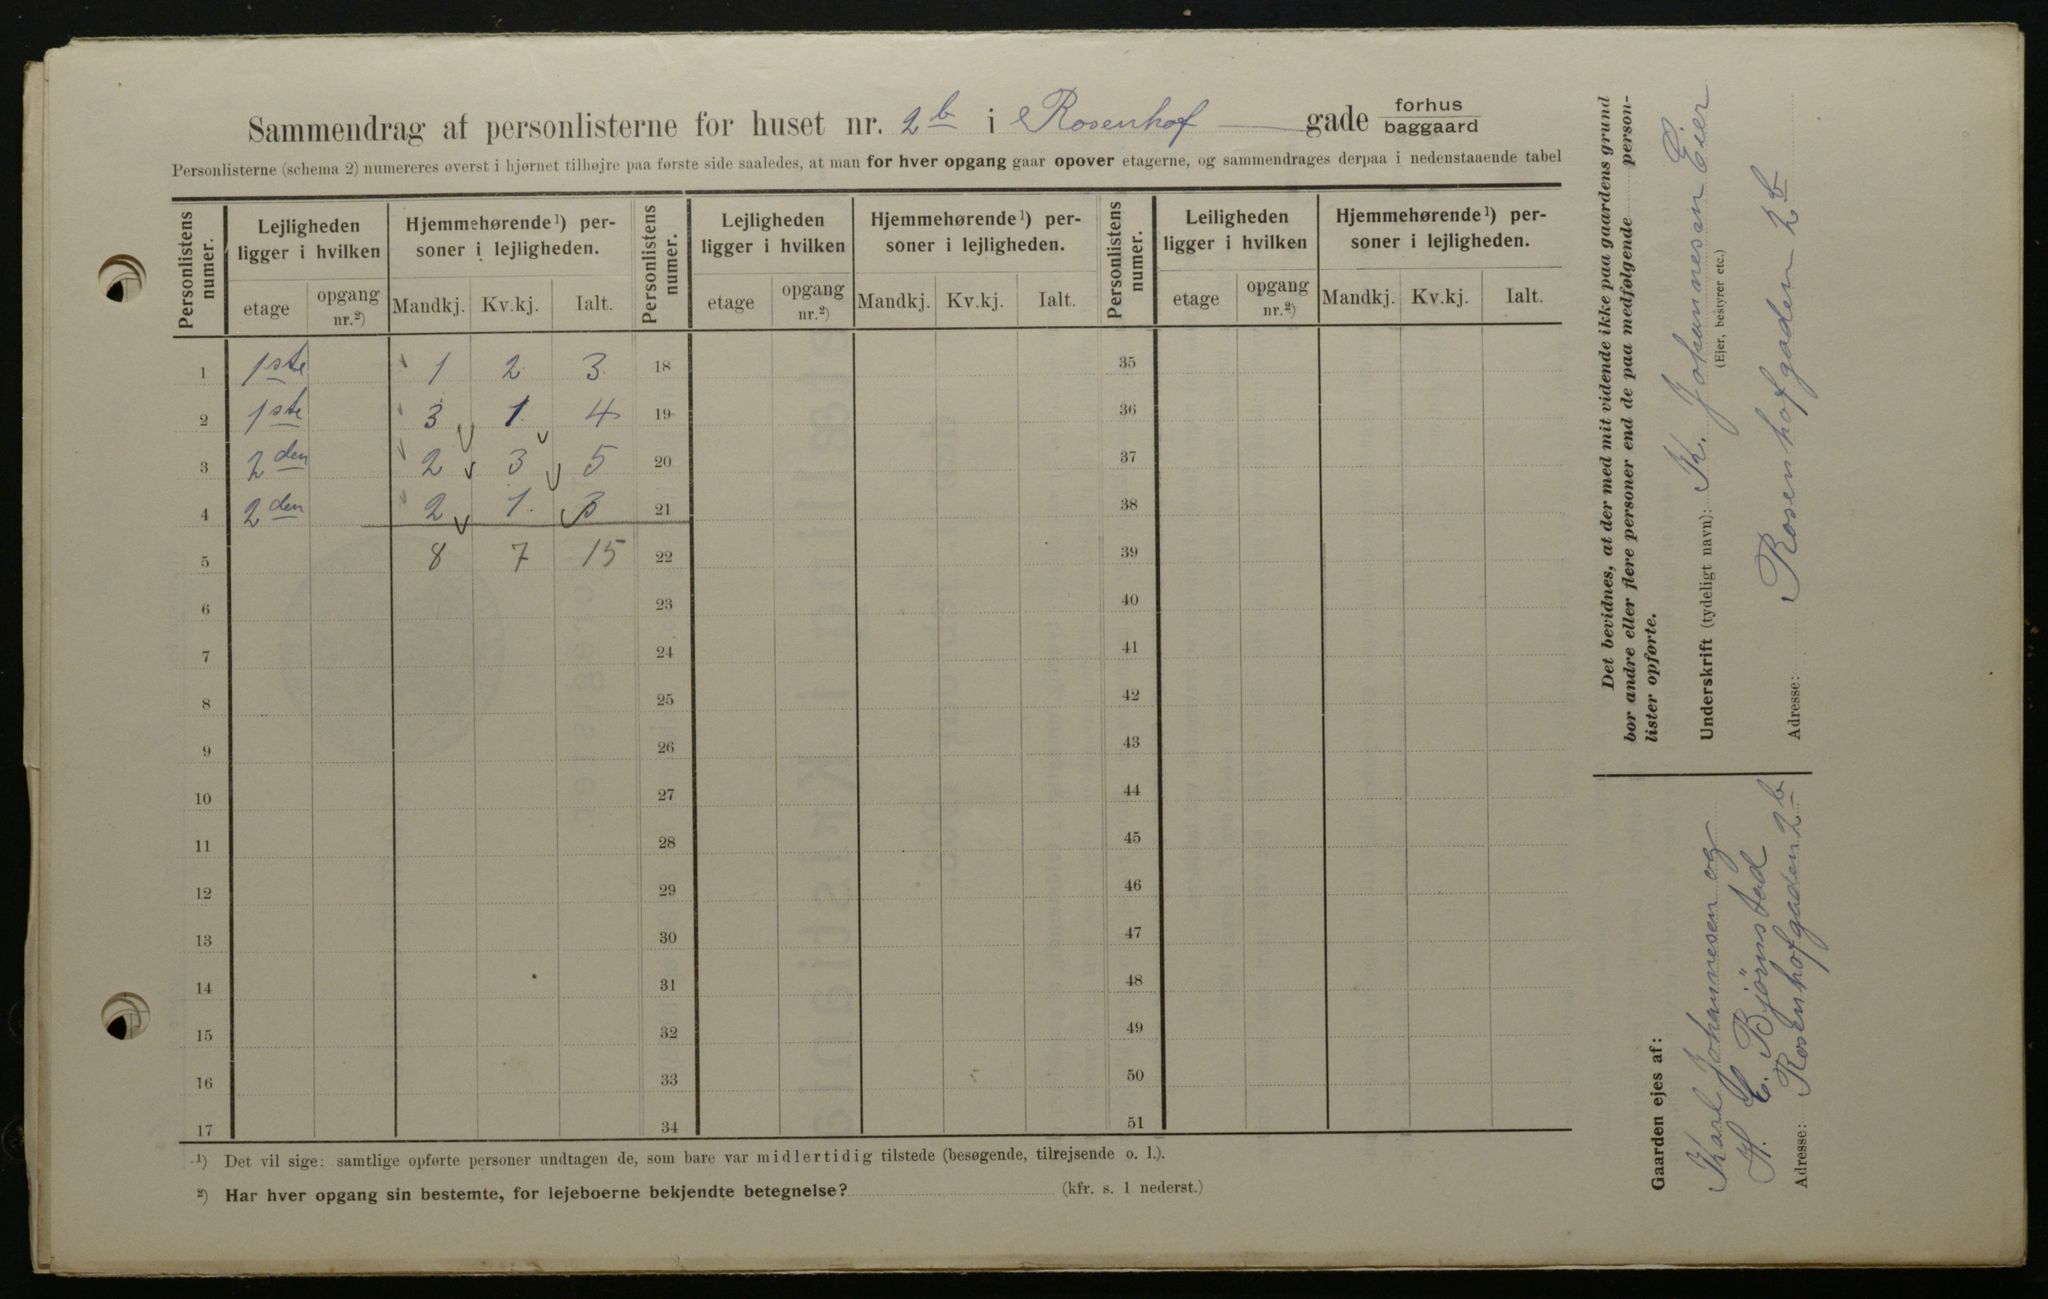 Sammendrag af personlisterne for huset nr. 2b i Rosenhof gade forhus baggaard
Personlisterne (schema 2) numereres øverst i hjørnet tilhøjre paa første side saaledes, at man for hver opgang gaar opover etagerne, og sammendrages derpaa i nedenstaaende tabel
Personlistens numer. Lejligheden ligger i hvilken Hjemmehørende¹) personer i lejligheden. Personlistens numer. Lejligheden ligger i hvilken Hjemmehørende¹) personer i lejligheden. Personlistens numer. Leiligheden ligger i hvilken Hjemmehørende¹) personer i lejligheden.
etage opgang nr.²) Mandkj. Kv.kj. Ialt. etage opgang nr.²) Mandkj. Kv.kj. Ialt. etage opgang nr.²) Mandkj. Kv.kj. Ialt.
1 1ste 1 2 3 18 35
2 1ste 3 1 4 19 36
3 2den 2 3 5 20 37
4 2den 2 1 3 21 38
5 8 7 15 22 39
6 23 40
7 24 41
8 25 42
9 26 43
10 27 44
11 28 45
12 29 46
13 30 47
14 31 48
15 32 49
16 33 50
17 34 51
¹) Det vil sige: samtlige opførte personer undtagen de, som bare var midlertidig tilstede (besøgende, tilrejsende o. l.).
²) Har hver opgang sin bestemte, for lejeboerne bekjendte betegnelse? (kfr. s. 1 nederst.)
Det bevidnes, at der med mit vidende ikke paa gaardens grund
bor andre eller flere personer end de paa medfølgende person-
lister opførte.
Underskrift (tydeligt navn): K. Johannesen Eier
(Ejer, bestyrer etc.)
Adresse: Rosenhofgaden 2b
Gaarden ejes af:
Karl Johannesen og
H. E. Bjørnstad
Adresse: Rosenhofgaden 2b